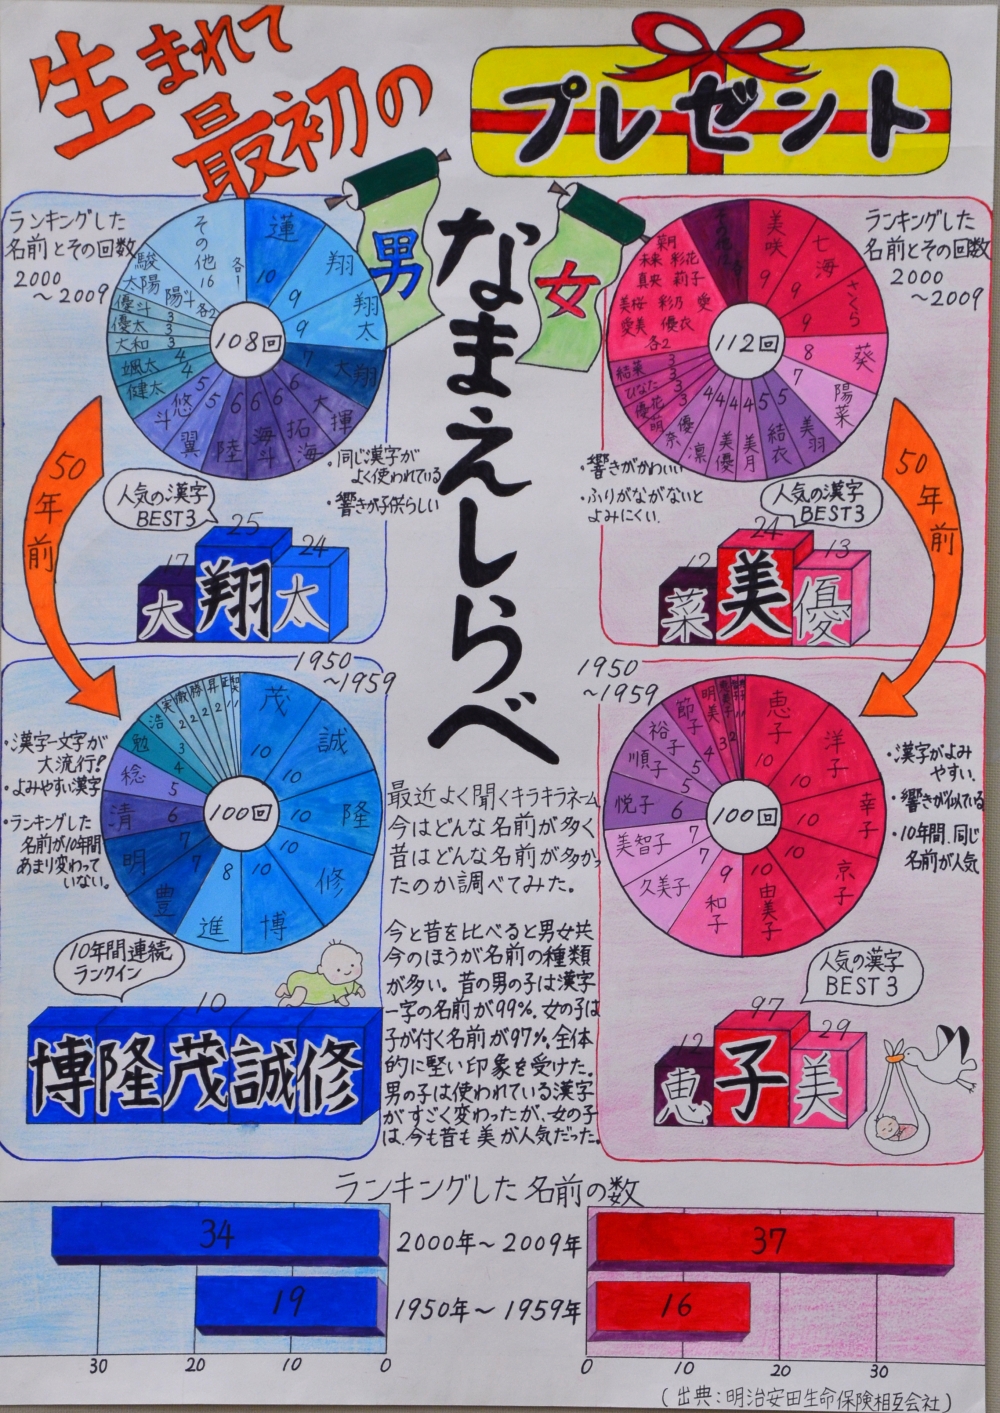 生まれて
最初の
プレゼント
なまえしらべ
男
女
ランキングした
名前とその回数
2000
～2009
108回
蓮
10
翔
9
翔太
9
大翔
7
大輝
6
拓海
6
海斗
6
陸
6
翼
5
悠斗
5
健太
4
颯太
4
大和
3
優太
3
優斗
3
陽斗
太陽
駿
各2
その他
16
各1
・同じ漢字が
よく使われている
・響きが子供らしい
人気の漢字
BEST3
17
25
24
大
翔
太
50年前
ランキングした
名前とその回数
2000
～2009
112回
美咲
9
七海
9
さくら
9
葵
8
陽菜
7
美羽
5
結衣
5
美月
4
美優
4
凛
4
優奈
4
萌
3
優花
3
ひなた
3
結菜
3
菜月
未来 彩花
真央 莉子
美桜 彩乃 愛
愛美 優衣
各2
その他
・響きがかわいい
・ふりがながないと
よみにくい.
人気の漢字
BEST3
12
24
13
菜
美
優
50年前
1950
～1959
100回
茂
10
誠
10
隆
10
修
10
博
10
進
8
豊
7
明
7
清
6
稔
5
勉
4
浩
3
実
2
徹
2
勝
2
昇
2
・漢字一文字が
大流行?
・よみやすい漢字
・ランキングした
名前が10年間
あまり変わって
いない。
10年間連続
ランクイン
10
博隆茂誠修
1950
～1959
100回
恵子
10
洋子
10
幸子
10
京子
10
由美子
10
和子
9
久美子
7
美智子
7
悦子
6
順子
5
裕子
5
節子
4
明美
3
・漢字がよみ
やすい.
・響きが似ている
・10年間、同じ
名前が人気
人気の漢字
BEST3
12
97
29
恵
子
美
最近よく聞くキラキラネーム
今はどんな名前が多く
昔はどんな名前が多かっ
たのか調べてみた。
今と昔を比べると男女共
今のほうが名前の種類
が多い。昔の男の子は漢字
一字の名前が99%.女の子は
子が付く名前が97%.全体
的に堅い印象を受けた.
男の子は使われている漢字
がすごく変わったが、女の子
は、今も昔も美が人気だった。
ランキングした名前の数
34
2000年～2009年
37
19
1950年～1959年
16
30
20
10
0
0
10
20
30
(出典:明治安田生命保険相互会社)